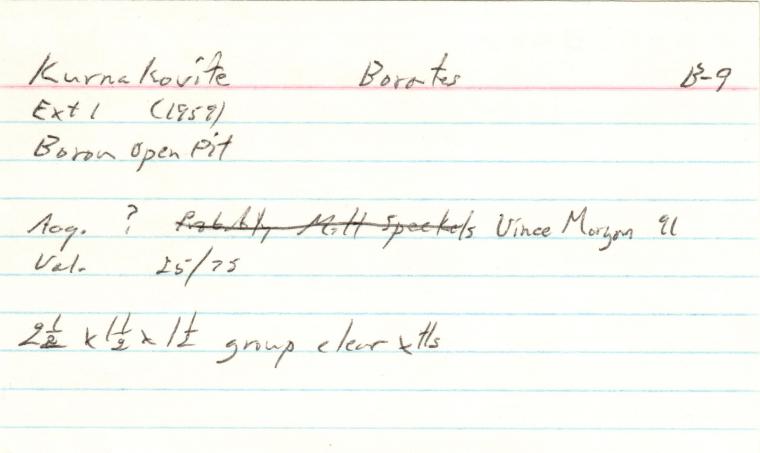 Kurnakovite Borates B-9
Ext 1 (1959)
Boron Open Pit
Acq. ? Probably Milt Speckels Vince Morgan 91
Val. 25/75
2 1/2 x 1 1/2 x 1 1/2 group clear xtls